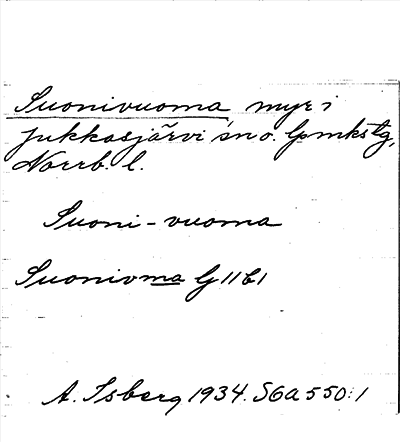 Suonivuoma myr i
Jukkasjärvi sn o. lpmkstg,
Norrb. l.
Suoni-vuoma
Suonivma G 11 b 1
A. Isberg 1934. S6a 550:1